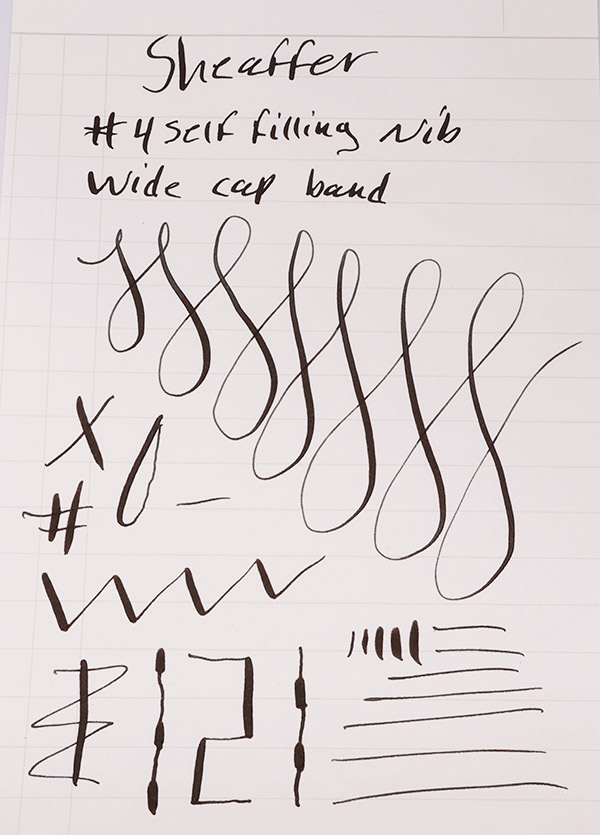 Sheaffer
#4 self filling nib
wide cap band
X
#